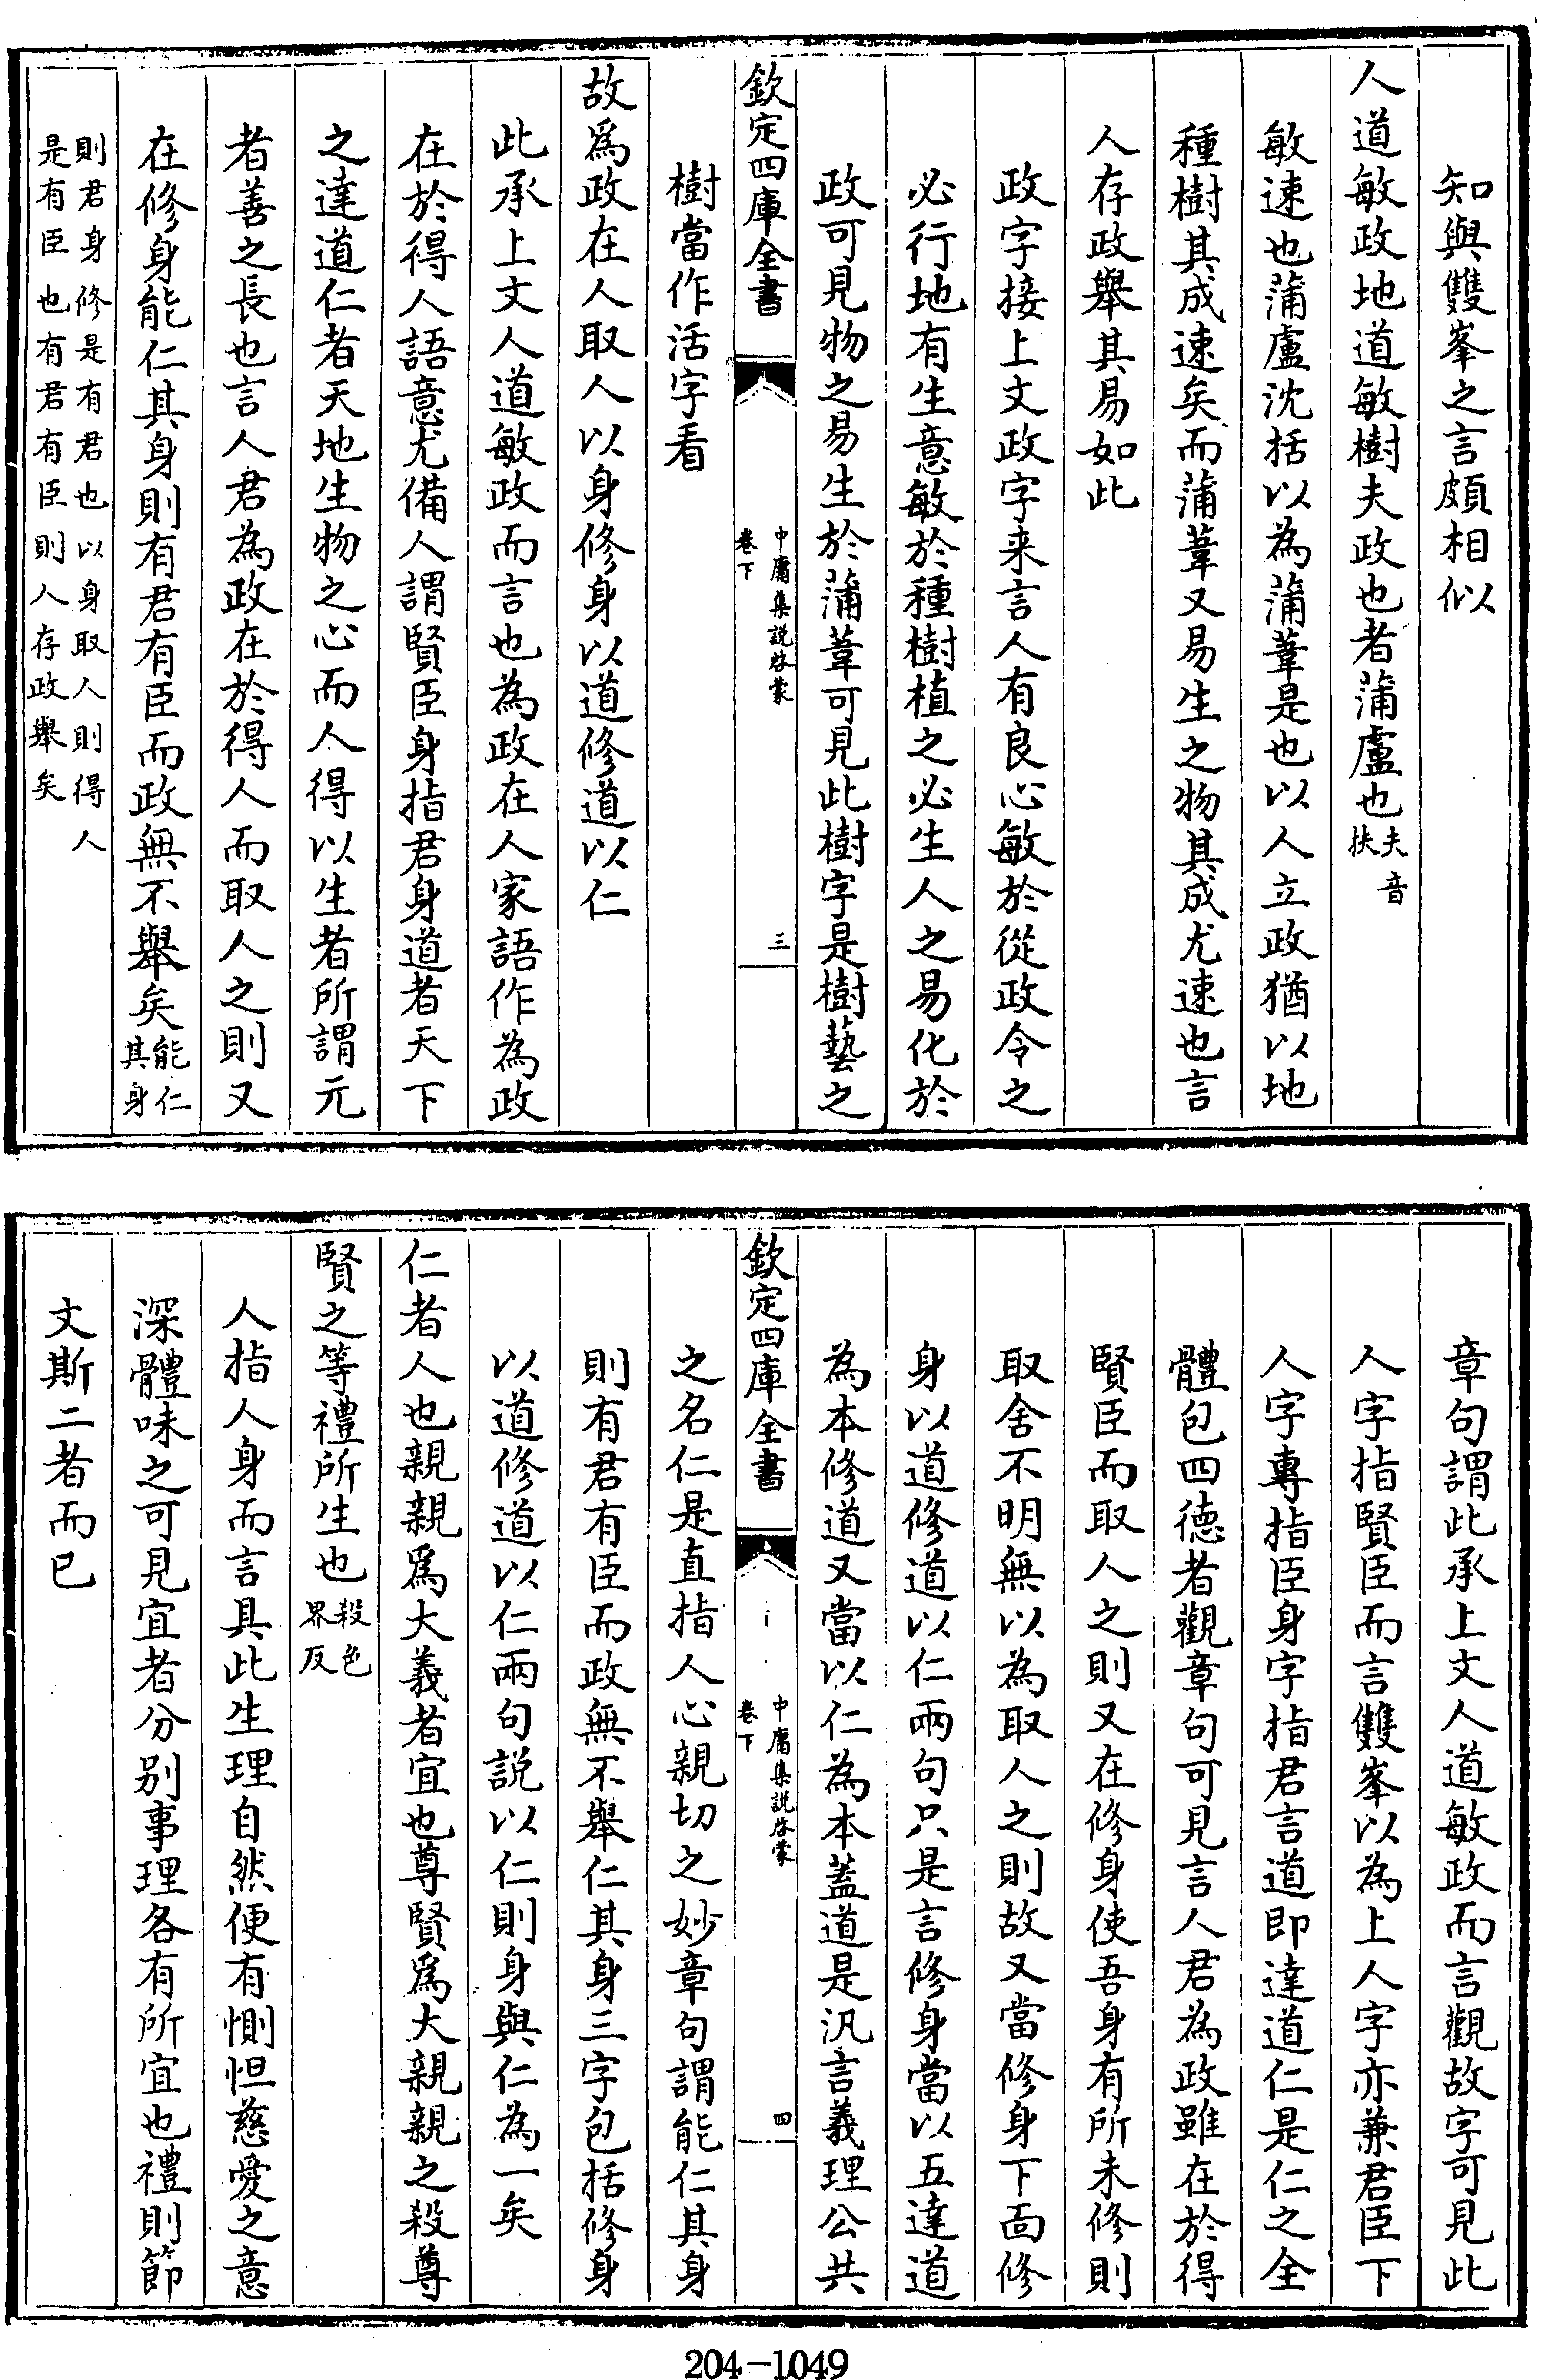 知與雙峯之言頗相似
人道敏政地道敏樹夫政也者蒲盧也夫音扶
敏速也蒲盧沈括以為蒲葦是也以人立政猶以地
種樹其成速矣而蒲葦又易生之物其成尤速也言
人存政舉其易如此
政字接上文政字来言人有良心敏於從政令之
必行地有生意敏於種樹植之必生人之易化於
政可見物之易生於蒲葦可見此樹字是樹藝之
欽定四庫全書
中庸集說啓蒙
卷下
三
樹當作活字看
故爲政在人取人以身修身以道修道以仁
此承上文人道敏政而言也為政在人家語作為政
在於得人語意尤備人謂賢臣身指君身道者天下
之達道仁者天地生物之心而人得以生者所謂元
者善之長也言人君為政在於得人而取人之則又
在修身能仁其身則有君有臣而政無不舉矣能仁其身
則君身修是有君也以身取人則得人
是有臣也有君有臣則人存政舉矣
章句謂此承上文人道敏政而言觀故字可見此
人字指賢臣而言雙峯以為上人字亦兼君臣下
人字專指臣身字指君言道即達道仁是仁之全
體包四德者觀章句可見言人君為政雖在於得
賢臣而取人之則又在修身使吾身有所未修則
取舍不明無以為取人之則故又當修身下面修
身以道修道以仁兩句只是言修身當以五達道
為本修道又當以仁為本蓋道是汎言義理公共
欽定四庫全書
中庸集說啓蒙
卷下
四
之名仁是直指人心親切之妙章句謂能仁其身
則有君有臣而政無不舉仁其身三字包括修身
以道修道以仁兩句說以仁則身與仁為一矣
仁者人也親親爲大義者宜也尊賢爲大親親之殺尊
賢之等禮所生也殺色界反
人指人身而言具此生理自然便有惻怛慈愛之意
深體味之可見宜者分别事理各有所宜也禮則節
文斯二者而已
204-1049